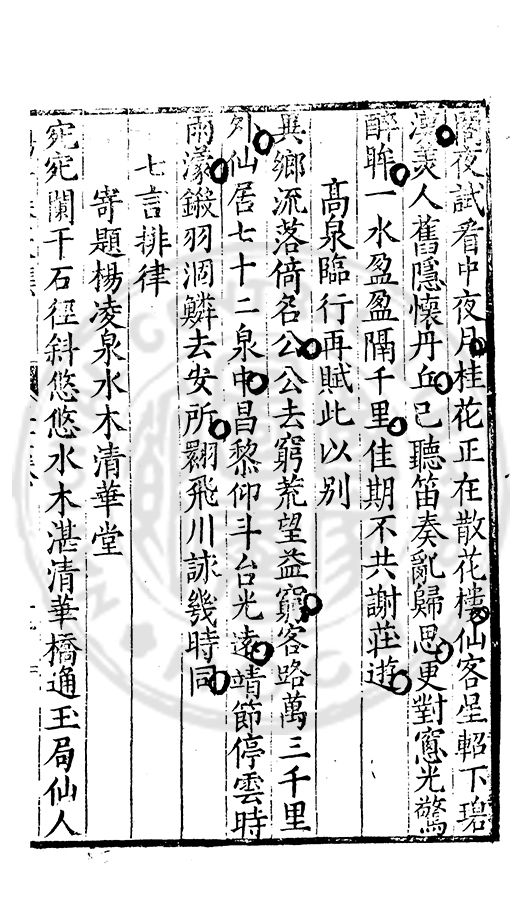 閣夜試看中夜月桂花正在散花樓仙客星軺下碧
漢美人舊隱懷丹丘已聽笛奏亂歸思更對窻光驚
醉眸一水盈盈隔千里佳期不共謝莊遊
髙泉臨行再賦此以别
異鄉流落倚名公公去窮荒望益窮客路萬三千里
外仙居七十二泉中昌黎仰斗台光遠靖節停雲時
雨濛鎩羽涸鱗去安所翺飛川詠幾時同
七言排律
寄題楊凌泉水木清華堂
宛宛闌干石徑斜悠悠水木湛清華橋通玉局仙人